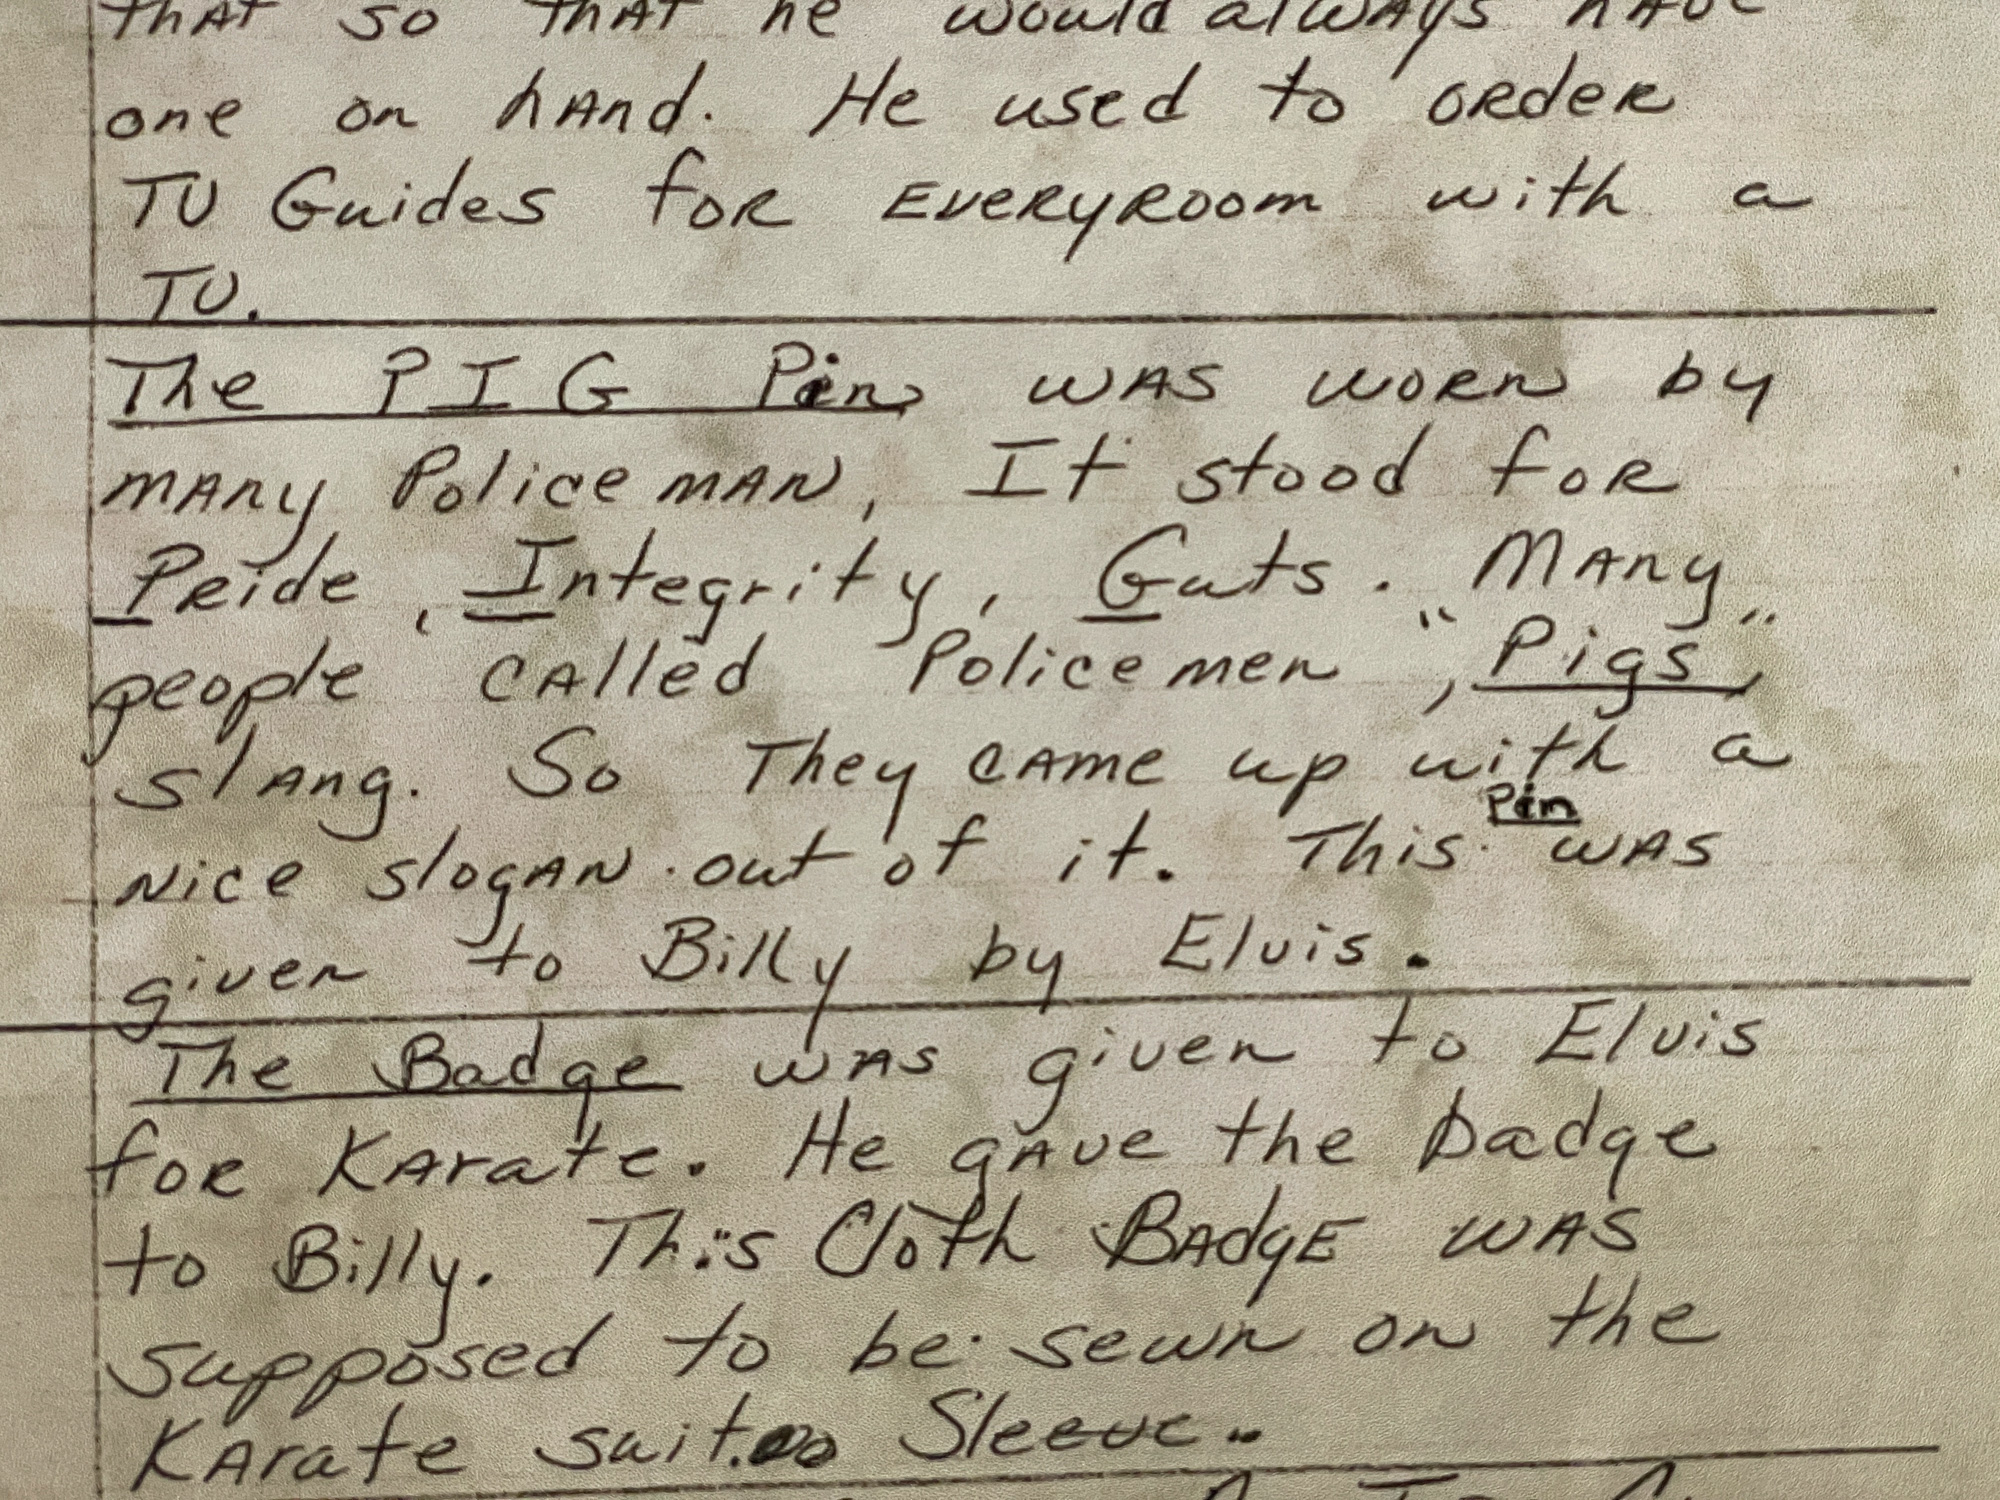 that so that he would always have
one on hand. He used to order
TV Guides for everyroom with a
TV.
The PIG Pin was worn by
many Policeman, It stood for
Pride, Integrity, Guts. Many
people called Policemen, "Pigs",
slang. So They came up with a
Pin
Nice slogan out of it. This was
given to Billy by Elvis.
The Badge was given to Elvis
for Karate. He gave the badge
to Billy. This Cloth Badge was
supposed to be sewn on the
Karate suit. Sleeve.